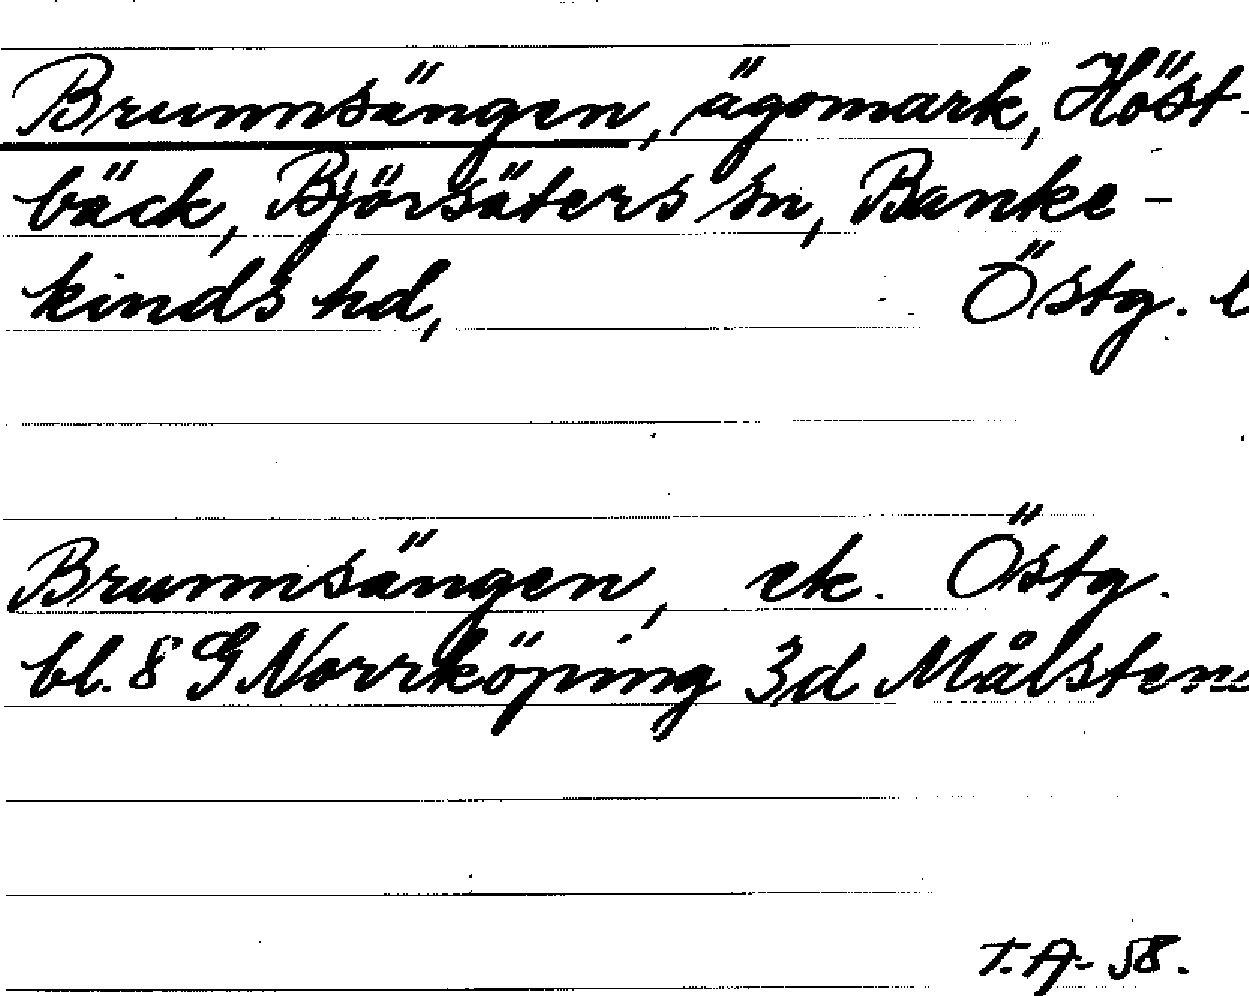 Brunnsängen, ägomark, Höst-
bäck, Björsäters sn, Banke-
kinds hd, Östg. l
Brunnsängen, ek. Östg.
bl. 8 G Norrköping 3d Målstens
T.A-58.